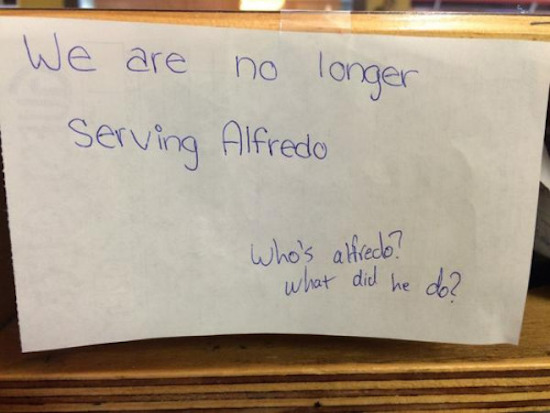 We are no longer
Serving Alfredo
Who's alfredo?
what did he do?